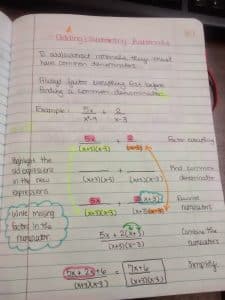 Adding/Subtracting Rationals
To add/subtract rationals they must
have common denominators.
Always factor everything first before
finding a common denominator.
Example: 5x/x²-9 + 2/x-3
5x/(x+3)(x-3) + 2/(x-3) Factor everything
Highlight the
old expressions
in the new
expressions
/(x+3)(x-3) + /(x+3)(x-3) Find common
denominator
5x/(x+3)(x-3) + 2(x+3)/(x+3)(x-3) Rewrite
numerators
Write missing
factors in the
numerator
5x + 2(x+3)/(x+3)(x-3) Combine the
numerators
5x + 2x+6/(x+3)(x-3) = 7x+6/(x+3)(x-3) Simplify